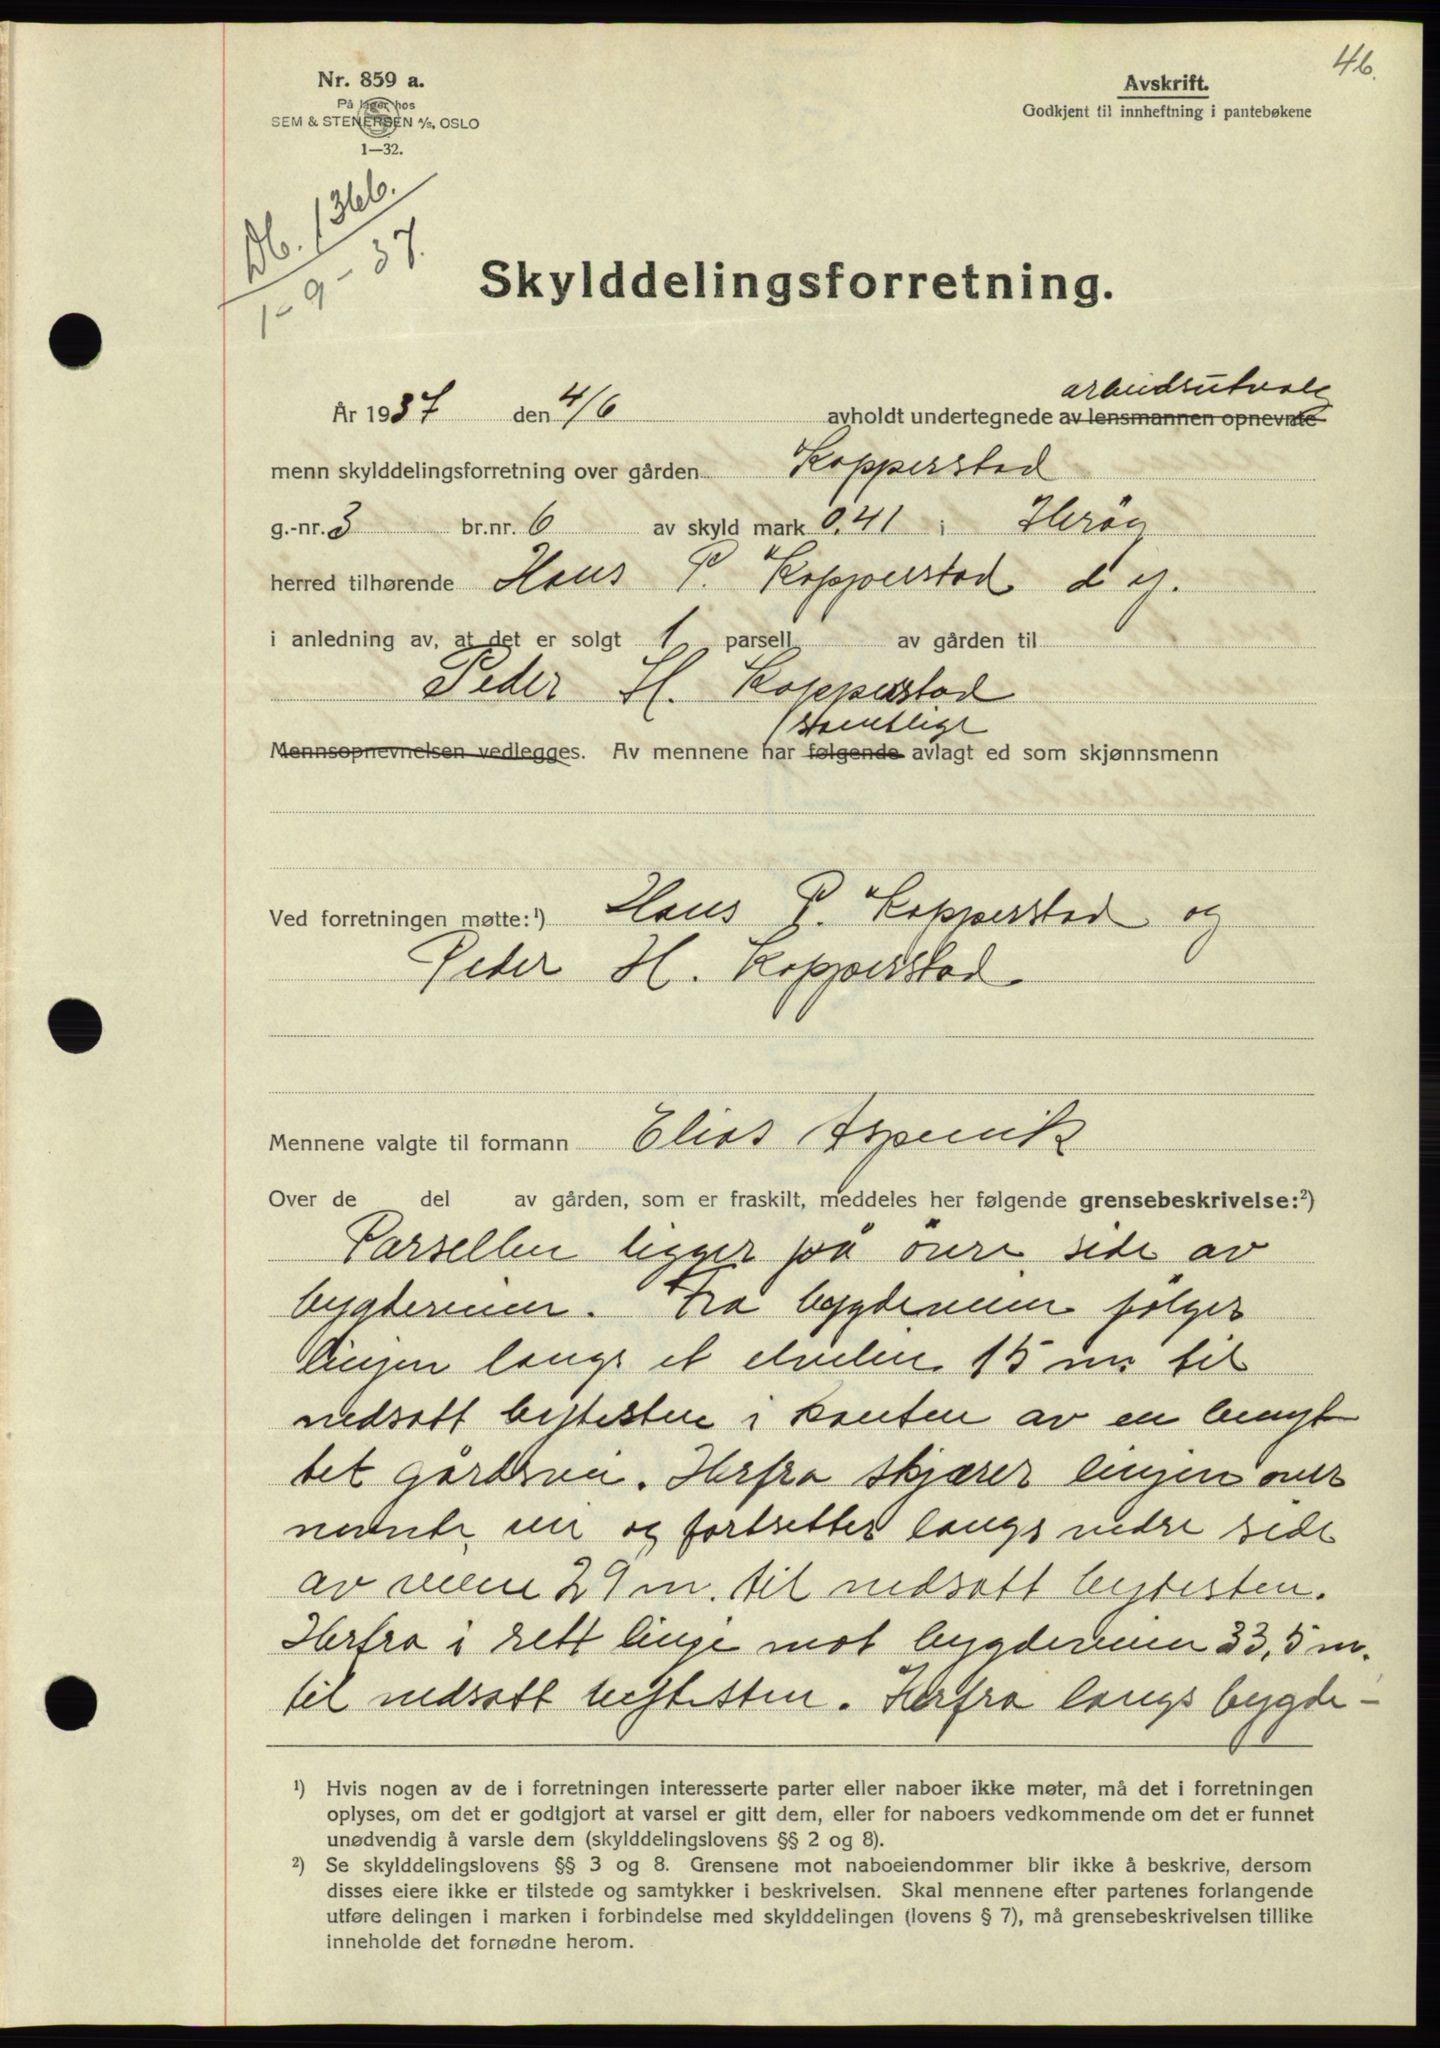 46.
Nr. 859 a.
På lager hos
SEM & STENERSEN A/S, OSLO
1—32.
Avskrift.
Godkjent til innheftning i pantebøkene
Db. 1366.
1-9-37.
Skylddelingsforretning.
arbeidsutvalg
År 1937 den 4/6 avholdt undertegnede av lensmannen opnevnte
menn skylddelingsforretning over gården Kopperstad
g.-nr. 3 br.nr. 6 av skyld mark 0,41 i Herøy
herred tilhørende Hans P. Kopperstad d y.
i anledning av, at det er solgt 1 parsell av gården til
Peder H. Kopperstad
samtlige
Mennsopnevnelsen vedlegges. Av mennene har følgende avlagt ed som skjønnsmenn
Ved forretningen møtte:¹) Hans P. Kopperstad og
Peder H. Kopperstad
Mennene valgte til formann Elias Aspevik
Over de del av gården, som er fraskilt, meddeles her følgende grensebeskrivelse:²)
Parsellen ligger på övre side av
bygdeveien. Fra bygdeveien følger
linjen langs et elveleie 15 m. til
nedsatt bytesten i kanten av en benyt-
tet gårdsvei. Herfra skjærer linjen over
nevnte vei og fortsetter langs nedre side
av veien 29 m. til nedsatt bytesten.
Herfra i rett linje mot bygdeveien 33,5 m.
til nedsatt bytesten. Herfra langs bygde-
¹) Hvis nogen av de i forretningen interesserte parter eller naboer ikke møter, må det i forretningen
oplyses, om det er godtgjort at varsel er gitt dem, eller for naboers vedkommende om det er funnet
unødvendig å varsle dem (skylddelingslovens §§ 2 og 8).
²) Se skylddelingslovens §§ 3 og 8. Grensene mot naboeiendommer blir ikke å beskrive, dersom
disses eiere ikke er tilstede og samtykker i beskrivelsen. Skal mennene efter partenes forlangende
utføre delingen i marken i forbindelse med skylddelingen (lovens § 7), må grensebeskrivelsen tillike
inneholde det fornødne herom.